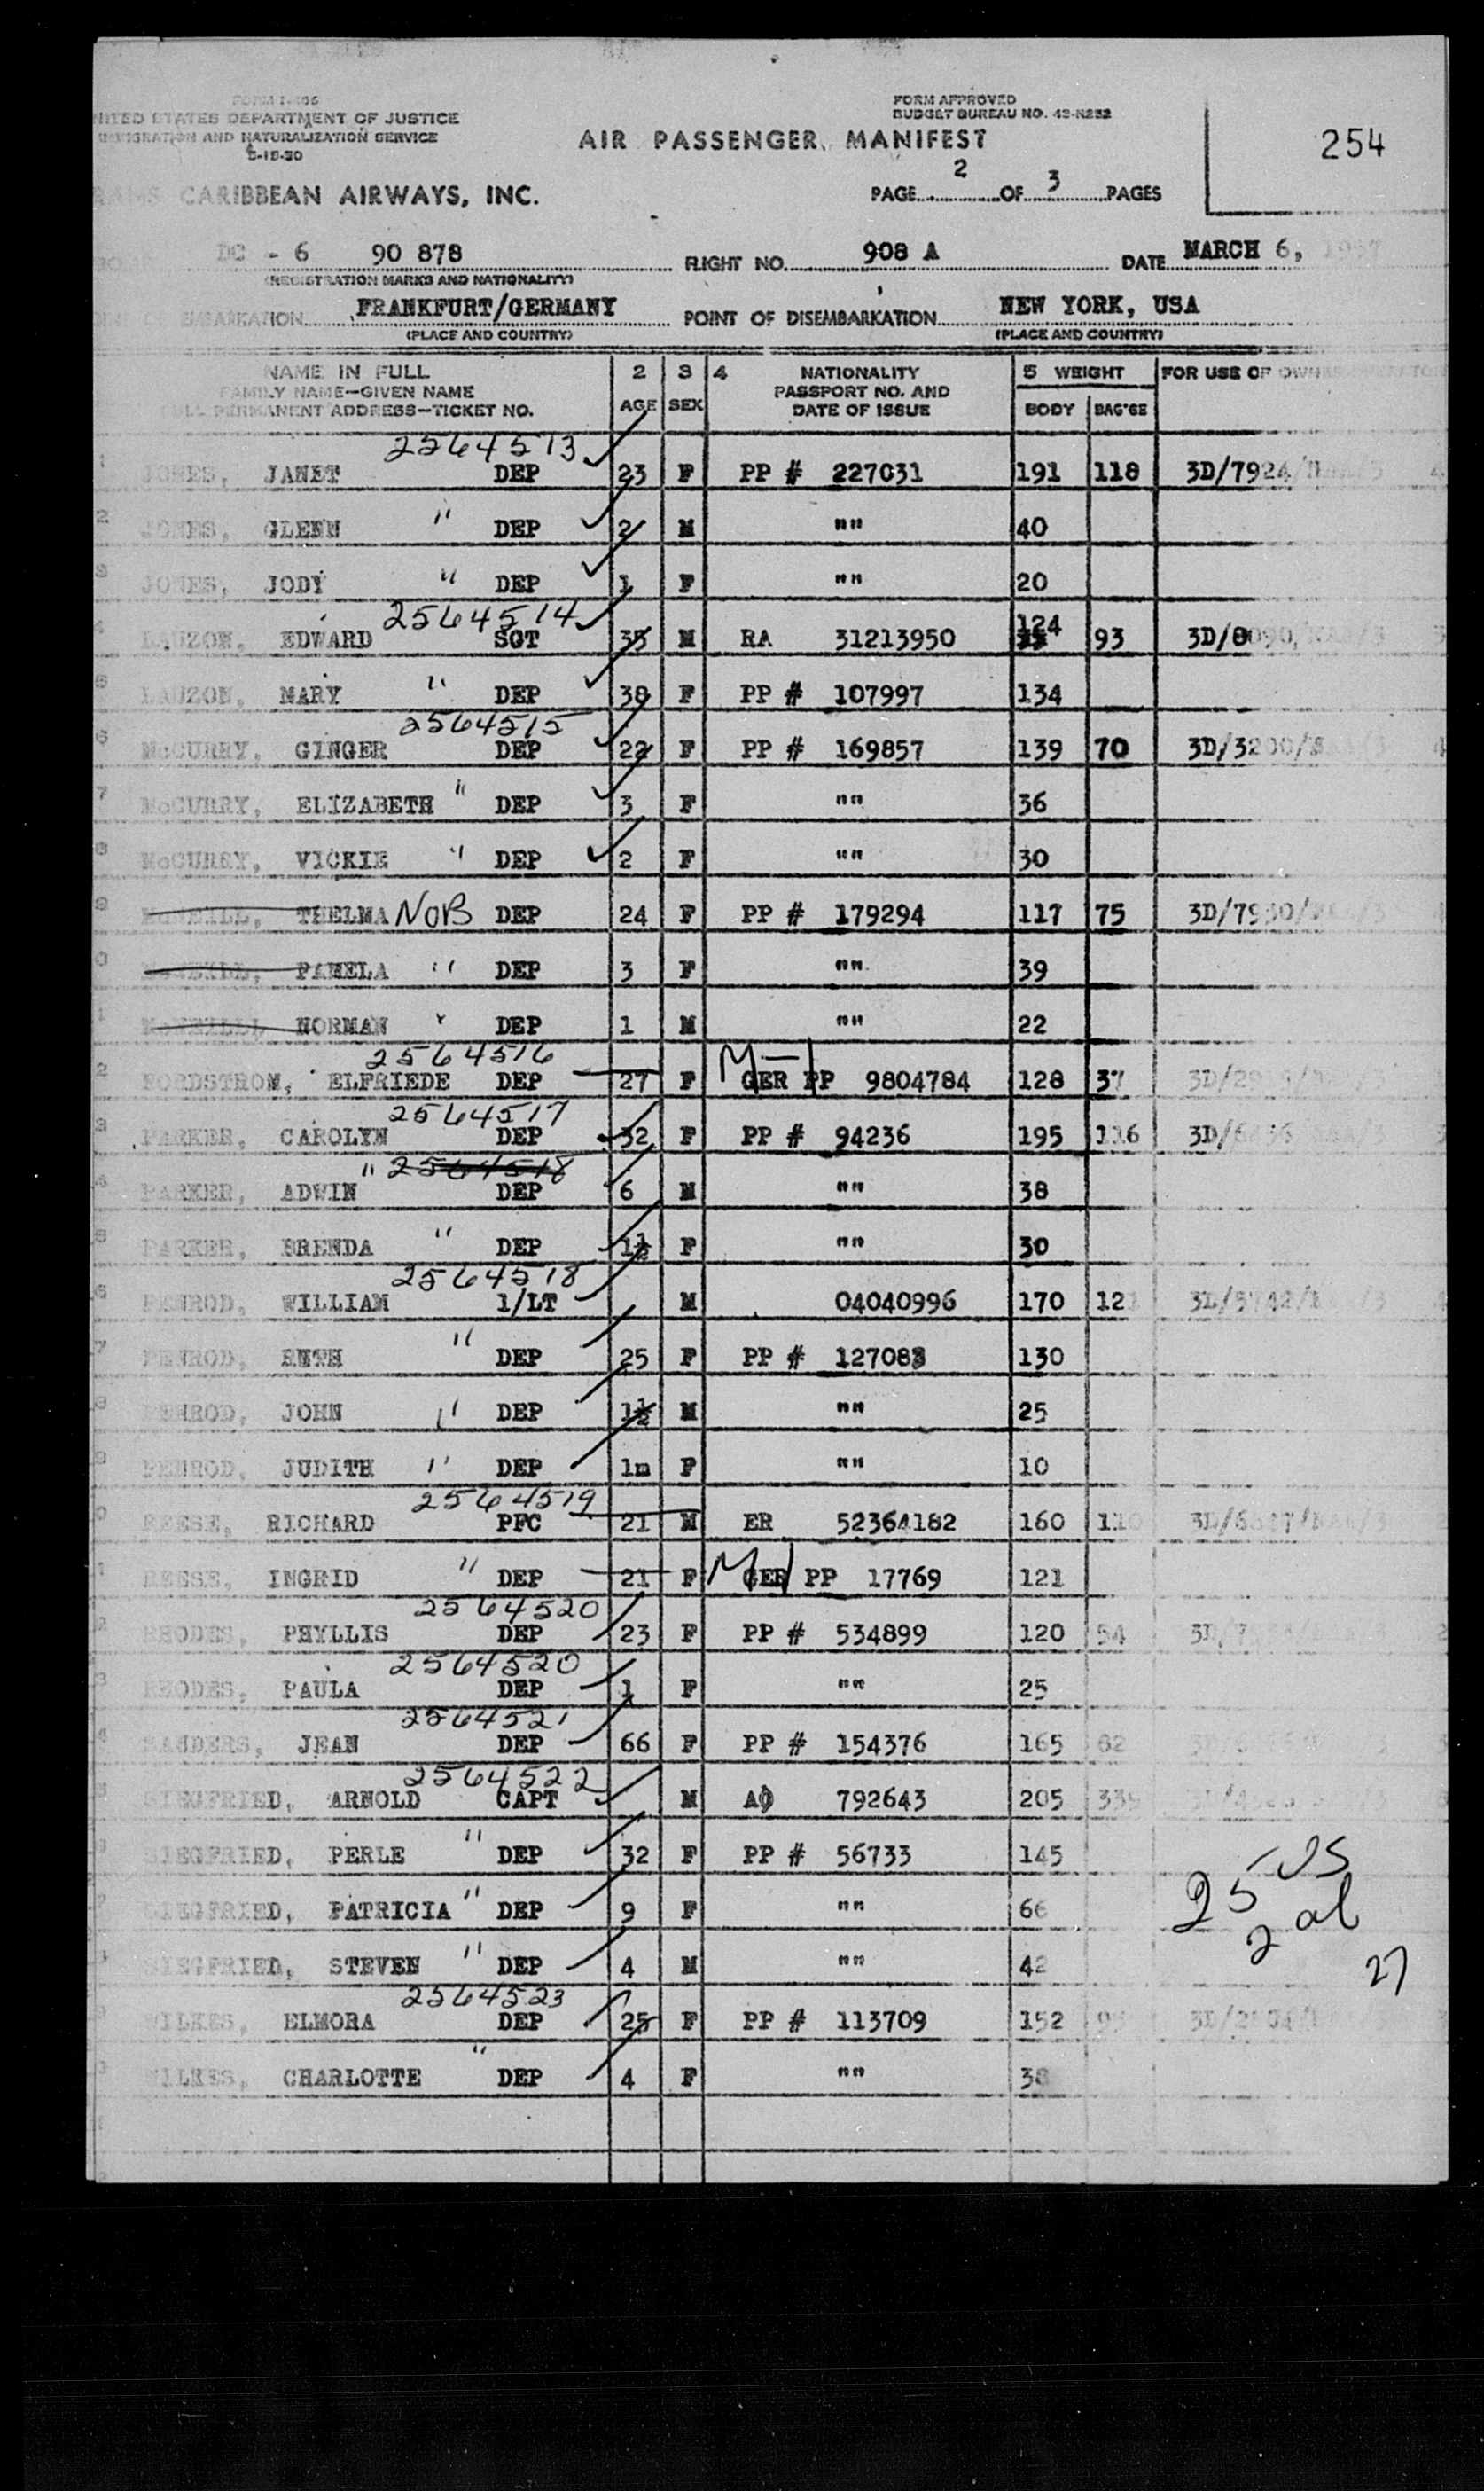 FORM I-466
UNITED STATES DEPARTMENT OF JUSTICE
IMMIGRATION AND NATURALIZATION SERVICE
5-15-50
FORM APPROVED
BUDGET BUREAU NO. 43-R232
AIR PASSENGER MANIFEST
254
PAGE 2 OF 3 PAGES
CARIBBEAN AIRWAYS, INC.
DC - 6 90 878 FLIGHT NO. 908 A DATE MARCH 6, 1957
(REGISTRATION MARKS AND NATIONALITY)
POINT OF EMBARKATION FRANKFURT/GERMANY POINT OF DISEMBARKATION NEW YORK, USA
(PLACE AND COUNTRY) (PLACE AND COUNTRY)
NAME IN FULL 2 3 4 NATIONALITY 5 WEIGHT FOR USE OF OWNER
FAMILY NAME—GIVEN NAME PASSPORT NO. AND
FULL PERMANENT ADDRESS—TICKET NO. AGE SEX DATE OF ISSUE BODY BAG'GE
2564513
1 JONES, JANET DEP 23 F PP # 227031 191 118 3D/7924
2 JONES, GLENN " DEP 2 M "" 40
3 JONES, JODY " DEP 1 F "" 20
2564514 124
4 LAUZON, EDWARD SGT 35 M RA 31213950 93 3D/8090
5 LAUZON, MARY " DEP 38 F PP # 107997 134
2564515
6 McCURRY, GINGER DEP 22 F PP # 169857 139 70 3D/3200
7 McCURRY, ELIZABETH " DEP 3 F "" 36
8 McCURRY, VICKIE " DEP 2 F "" 30
9 McNEILL, THELMA NOB DEP 24 F PP # 179294 117 75 3D/7930
0 McNEILL, PAMELA " DEP 3 F "" 39
1 McNEILL, NORMAN " DEP 1 M "" 22
2564516 M-1
2 NORDSTROM, ELFRIEDE DEP 27 F GER PP 9804784 128 37
2564517
3 PARKER, CAROLYN DEP 32 F PP # 94236 195 116 3D/6436
" 2564518
4 PARKER, ADWIN DEP 6 M "" 38
5 PARKER, BRENDA " DEP 1½ F "" 30
2564518
6 PENROD, WILLIAM 1/LT M 04040996 170 121 3D/5742
7 PENROD, RUTH " DEP 25 F PP # 127083 130
8 PENROD, JOHN " DEP 1½ M "" 25
9 PENROD, JUDITH " DEP 1m F "" 10
2564519
0 REESE, RICHARD PFC 21 M ER 52364182 160 110
1 REESE, INGRID " DEP 21 F GER PP 17769 121
2564520
2 RHODES, PHYLLIS DEP 23 F PP # 534899 120 54
2564520
3 RHODES, PAULA DEP 1 F "" 25
2564521
4 SANDERS, JEAN DEP 66 F PP # 154376 165 62
2564522
5 SIEGFRIED, ARNOLD CAPT M AO 792643 205 339
6 SIEGFRIED, PERLE " DEP 32 F PP # 56733 145
7 SIEGFRIED, PATRICIA " DEP 9 F "" 66
SIEGFRIED, STEVEN " DEP 4 M "" 42
25 US
2 al
27
2564523
9 WILKES, ELMORA DEP 25 F PP # 113709 152
WILKES, CHARLOTTE " DEP 4 F "" 38